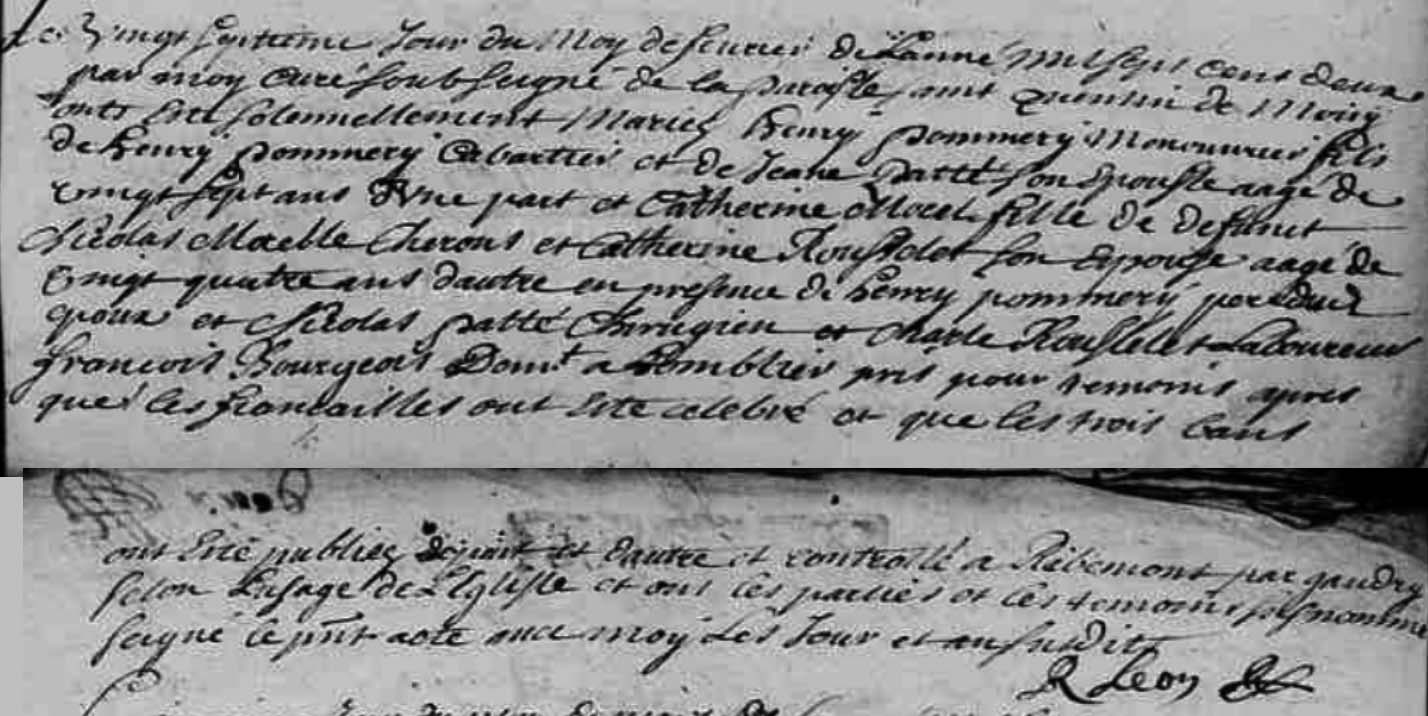 Le vingt septieme Jour du Moy de feuvrier de Lanné mil sept cent deux
par moy Curé soub seigné de la paroisse saint quentin de Mouy
onts esté solennellement Mariez henry pommery Manouvrier fils
de henry pommery Cabartier et de Jeane patté son Epousse aagé de
vingt sept ans d'Vne part et Catherine Moeel fille de defunct
Nicolas Moelle Cherons et Catherine Rousselot son Epouse aagé de
vingt quatre ans dautre en presence de henry pommery pere dud
epoux et Nicolas patté Chirugien et Charle Rousselet Laboureur
francois Bourgeois Domt a remblier pris pour temoins apres
que les francailles ont esté celebré et que les trois bans
ont esté publiez depart et dautre et controllé a Ribemont par gaudry
selon Lusage de L'Eglisse et ont les parties et les temoins susnommé
seigné le pnt acte avec moy Les Jour et an susdit
R Leon